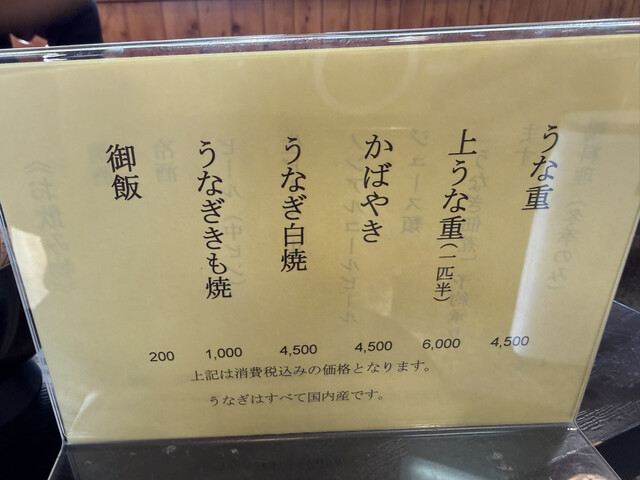 うな重 4,500
上うな重(一匹半) 6,000
かばやき 4,500
うなぎ白焼 4,500
うなぎきも焼 1,000
御飯 200
上記は消費税込みの価格となります。
うなぎはすべて国内産です。